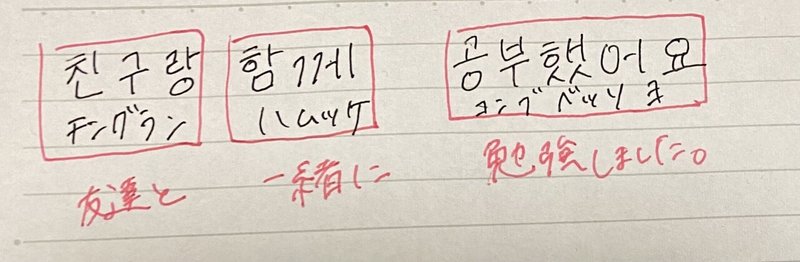 친구랑 함께 공부했어요
チングラン ハムッケ コンブベッソヨ
友達と 一緒に 勉強しました。